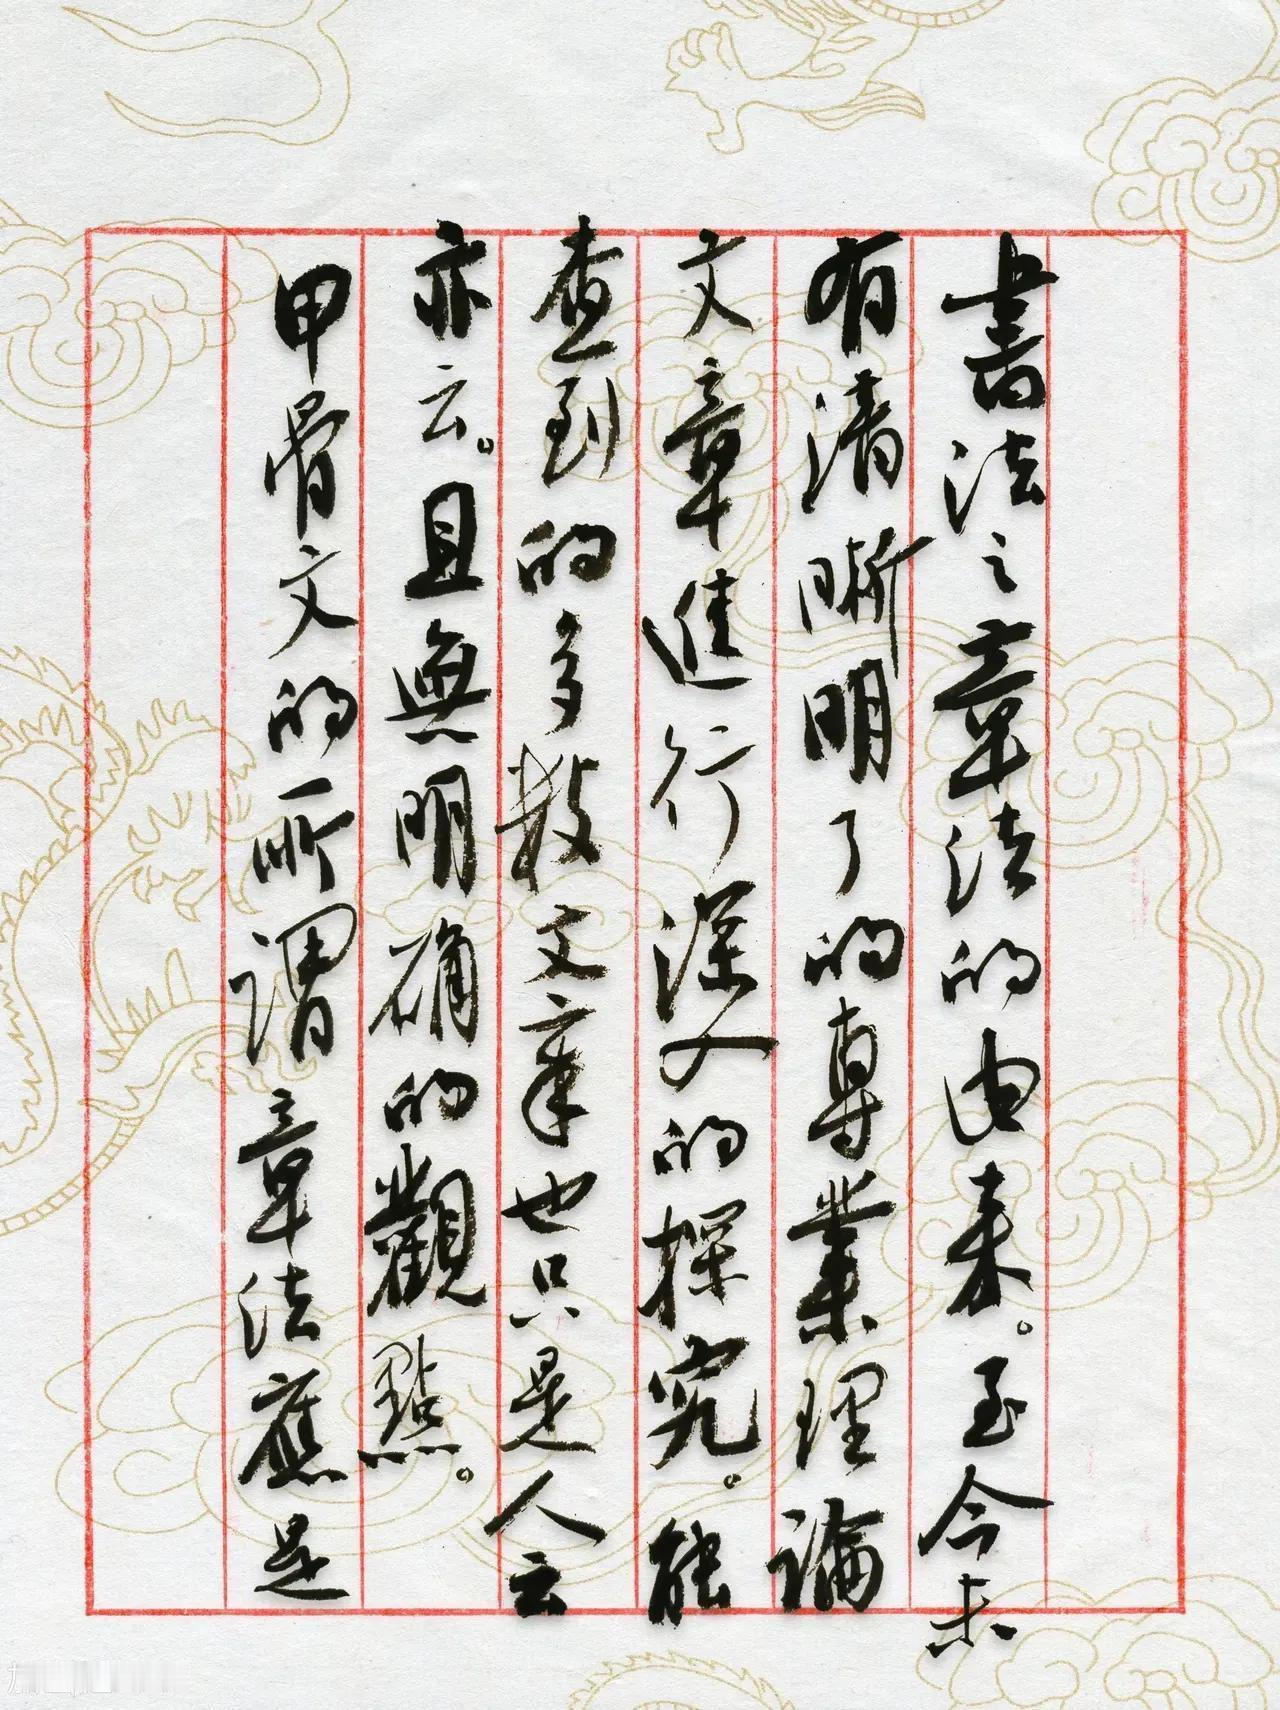 書法之章法的由来。至今未
有清晰明了的專業理論
文章進行深入的探究。能
查到的多数文章也只是人云
亦云。且無明确的觀點。
甲骨文的所謂章法應是